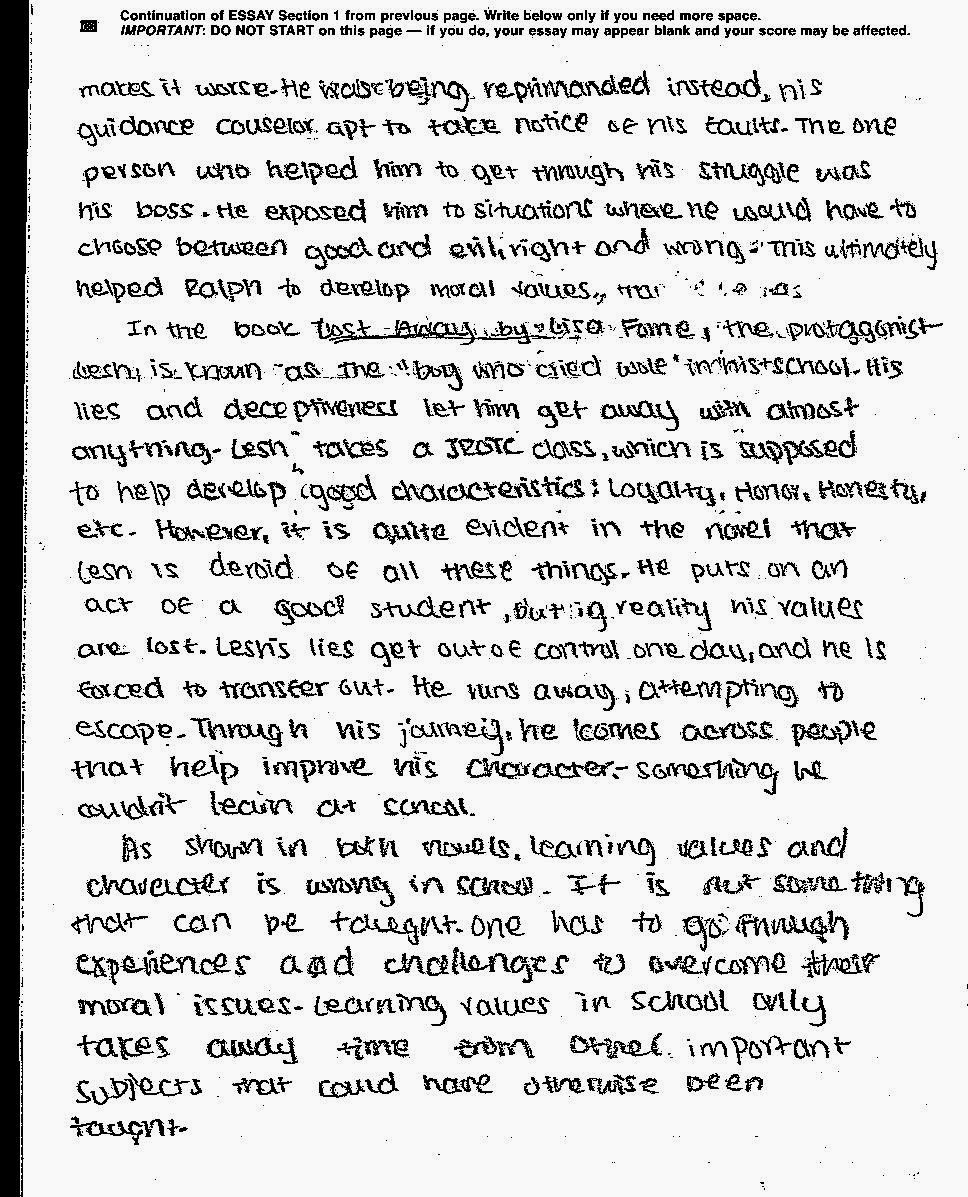 Continuation of ESSAY Section 1 from previous page. Write below only if you need more space.
IMPORTANT: DO NOT START on this page — if you do, your essay may appear blank and your score may be affected.
makes it worse. He was being reprimanded instead, his
guidance counselor apt to take notice of his faults. The one
person who helped him to get through his struggle was
his boss. He exposed him to situations where he would have to
choose between good and evil, right and wrong. This ultimately
helped Ralph to develop moral values,
In the book Lost Away, by Lisa Fame, the protagonist
Lesh, is known as the "boy who cried wolf" in his school. His
lies and deceptiveness let him get away with almost
anything. Lesh takes a JROTC class, which is supposed
to help develop good characteristics: Loyalty, Honor, Honesty,
etc. However, it is quite evident in the novel that
Lesh is devoid of all these things. He puts on an
act of a good student, but in reality his values
are lost. Lesh's lies get out of control one day, and he is
forced to transfer out. He runs away, attempting to
escape. Through his journey, he comes across people
that help improve his character - something he
couldn't learn at school.
As shown in both novels, learning values and
character is wrong in school. It is not something
that can be taught. One has to go through
experiences and challenges to overcome their
moral issues. Learning values in school only
takes away time from other important
subjects that could have otherwise been
taught.